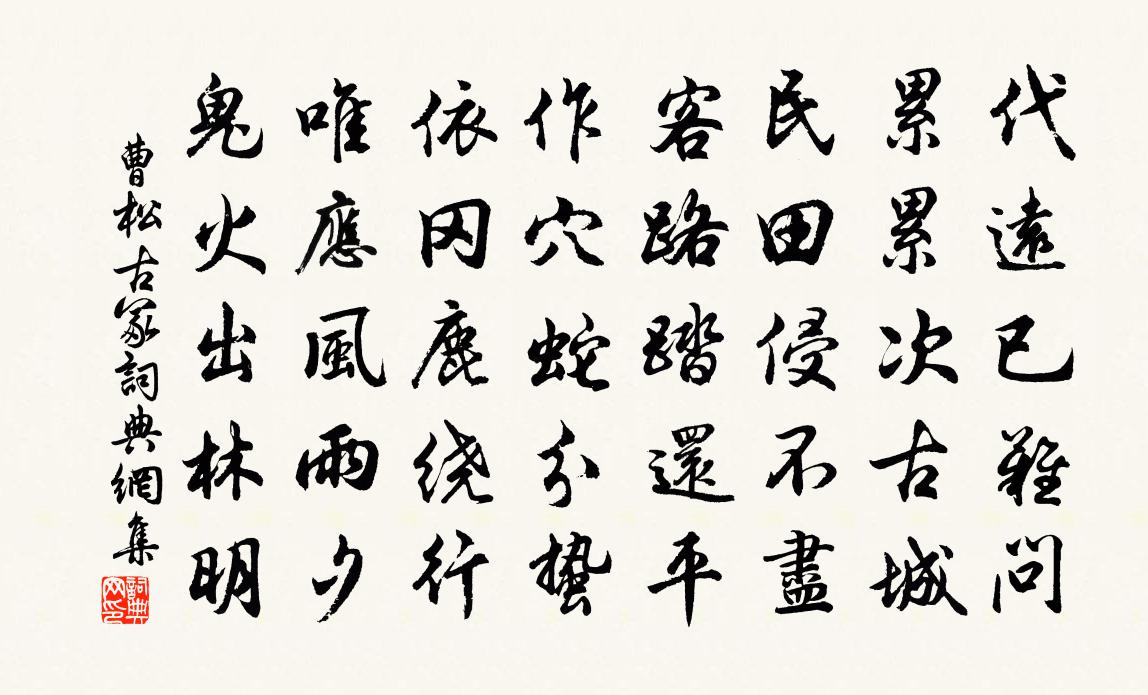 代遠已難問
累累次古城
民田侵不盡
客路踏還平
作穴蛇分蟄
依冈鹿绕行
唯應風雨夕
鬼火出林明
曹松古冢詞典網集
詞典網印